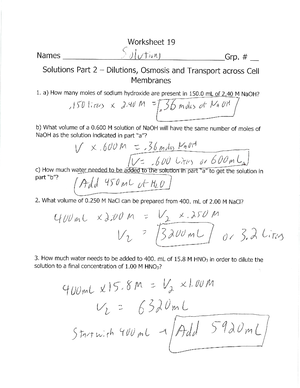 Worksheet 19
Names Solutions Grp. #
Solutions Part 2 – Dilutions, Osmosis and Transport across Cell
Membranes
1. a) How many moles of sodium hydroxide are present in 150.0 mL of 2.40 M NaOH?
.150 litres x 2.40 M = .36 moles of NaOH
b) What volume of a 0.600 M solution of NaOH will have the same number of moles of
NaOH as the solution indicated in part "a"?
V x .600M = .36 moles NaOH
V = .600 litres or 600 mL
c) How much water needed to be added to the solution in part "a" to get the solution in
part "b"?
Add 450 mL of H2O
2. What volume of 0.250 M NaCl can be prepared from 400. mL of 2.00 M NaCl?
400mL x 2.00 M = V2 x .250 M
V2 = 3200mL or 3.2 liters
3. How much water needs to be added to 400. mL of 15.8 M HNO3 in order to dilute the
solution to a final concentration of 1.00 M HNO3?
400mL x 15.8 M = V2 x 1.00M
V2 = 6320mL
Start with 400 mL so Add 5920mL